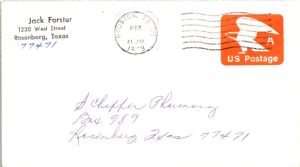 Jack Forster
1220 West Street
Rosenberg, Texas
77471
HOUSTON, TX
PM
1979
A
US Postage
Schaffer Pharmacy
Box 989
Rosenberg, Texas 77471